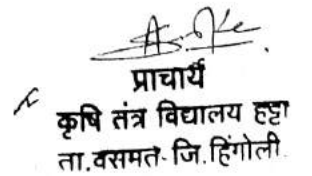 प्राचार्य
कृषि तंत्र विद्यालय हट्टा
ता.वसमत- जि.हिंगोली